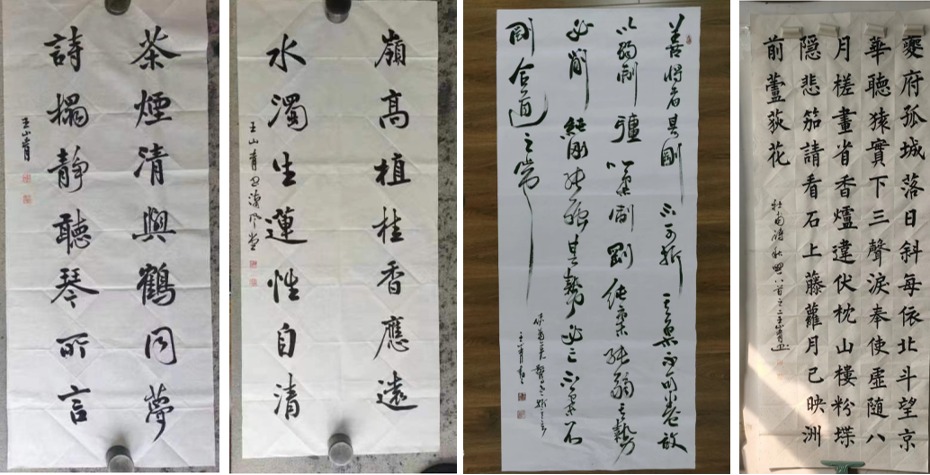 茶煙清興鶴同夢
詩榻靜聽琴所言
王山青
嶺高植桂香應遠
水濁生蓮性自清
王山青
善將者其剛不可折其柔不可卷故
以弱制彊以柔制剛純柔純弱其勢
必削純剛純強其勢必亡不柔不
剛合道之常
夔府孤城落日斜每依北斗望京
華聽猿實下三聲淚奉使虛隨八
月槎畫省香爐違伏枕山樓粉堞
隱悲笳請看石上藤蘿月已映洲
前蘆荻花
杜甫詩秋興八首之二王山青書